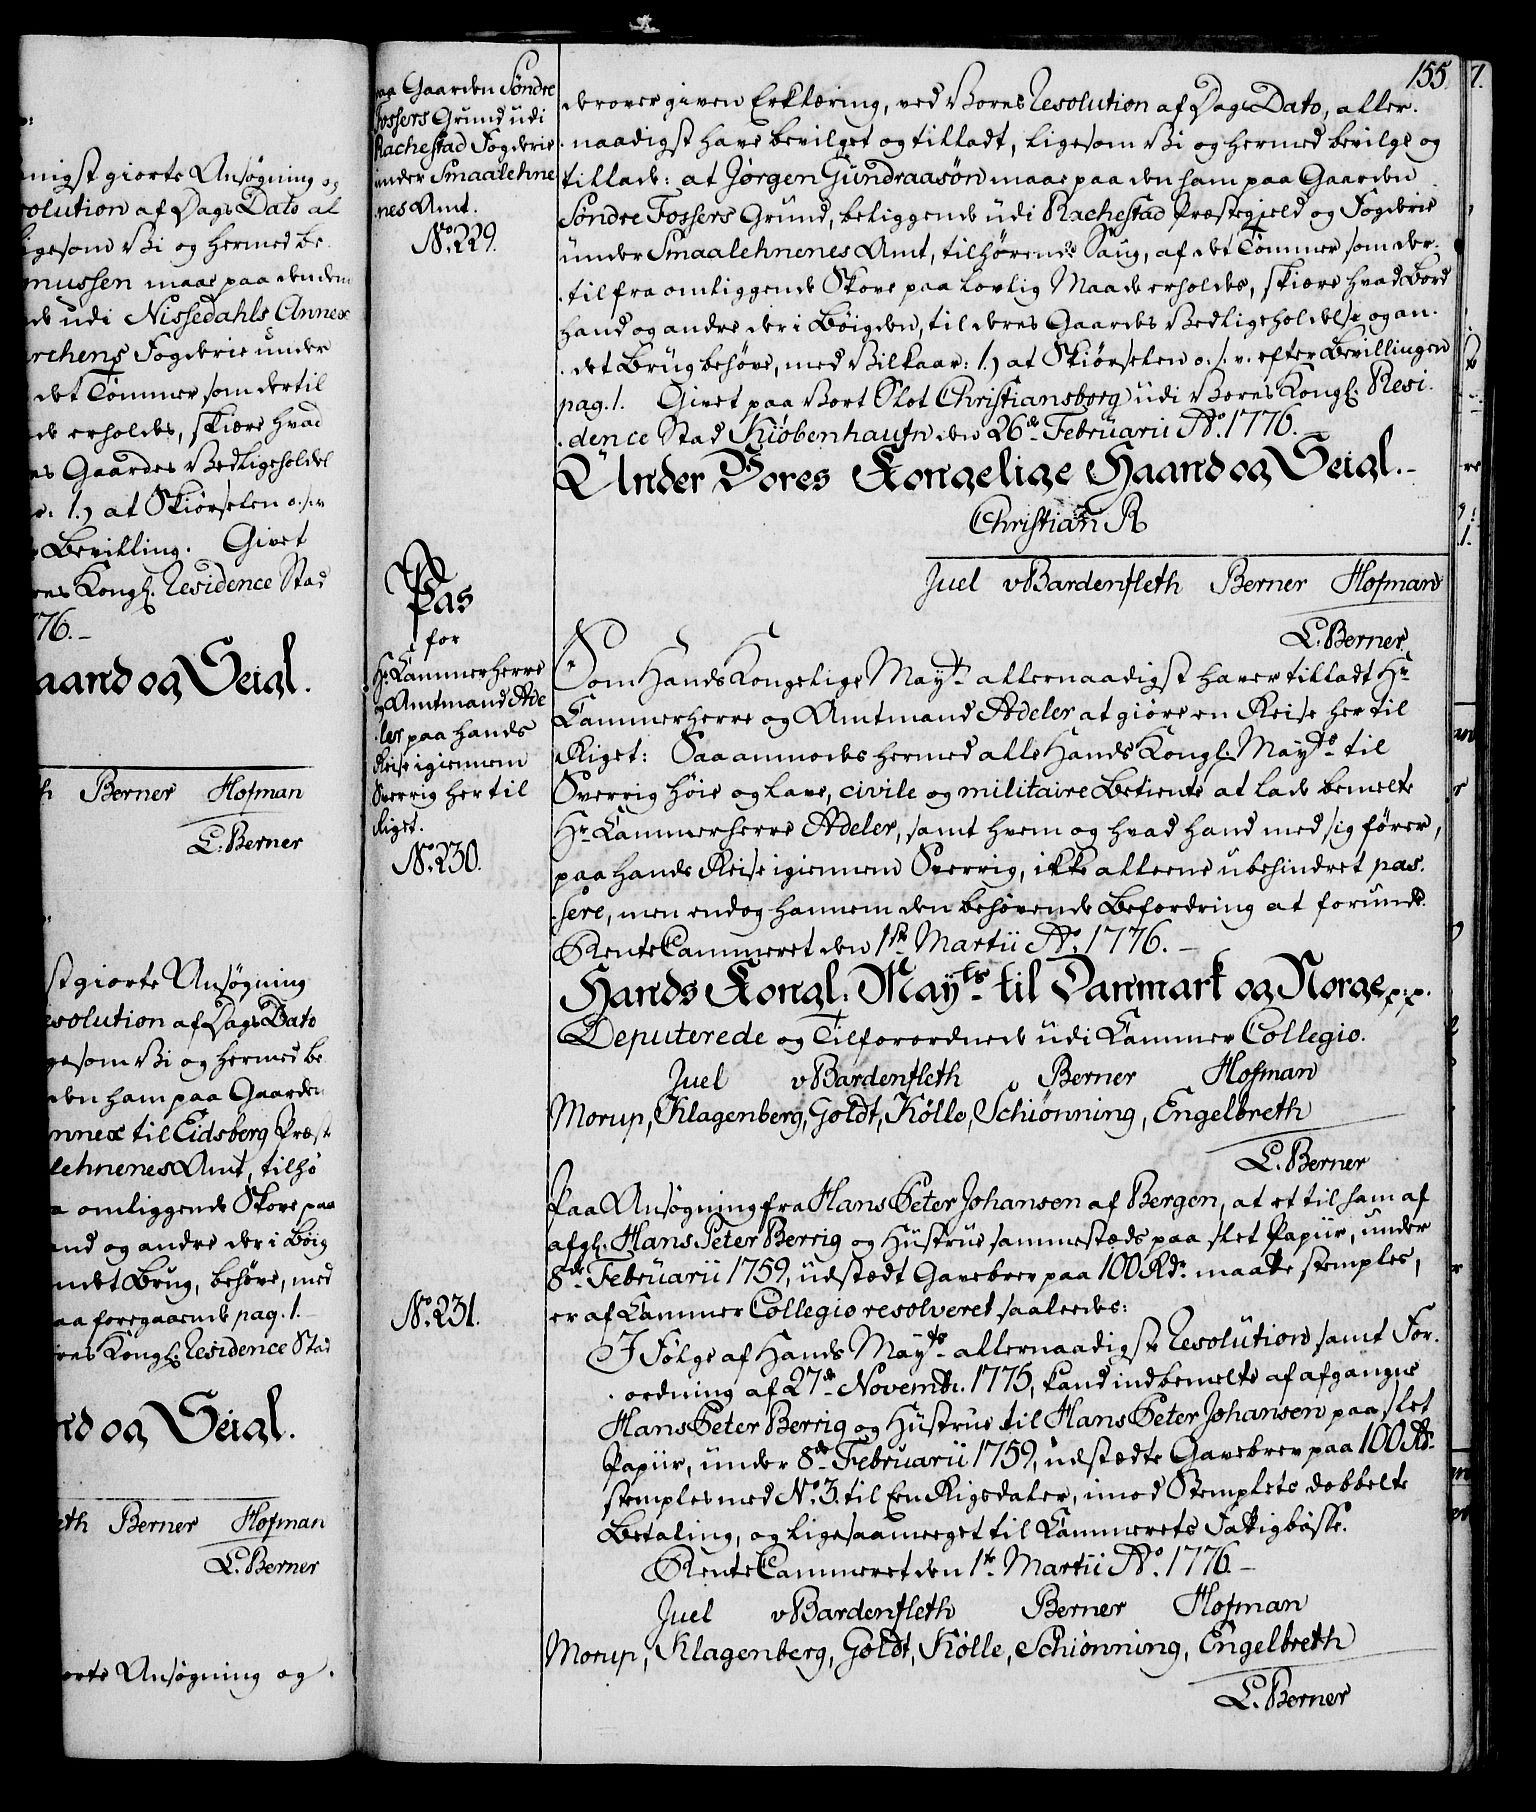 nigst giorte Ansøgning og
olution af Dags Dato al
igesom Vi og hermed be
mussen maae paa den dem
de udi Nissedahls Annex
rchens Fogderie under
det Tømmer som dertil
de erholdes, skiære hvad
es Gaardes Vedligeholdel
: 1.) at Skiørselen o.s.v
Bevilling. Givet
res Kongl. Residence Stad
76.-
aand og Seigl.
h Berner Hofman
L. Berner
st giorte Ansøgning
esolution af Dags Dato
gesom Vi og hermed be
den ham paa Gaarden
nnex til Eidsberg Præst
lehnenes Amt, tilhø
a omliggende Skove paa
and og andre der i Böig
ndet Brug, behøve, med
aa foregaaende pag. 1.-
res Kongl. Residence Stad
nd og Seigl.
eth Berner Hofman
L. Berner
orte Ansøgning og
paa Gaarden Söndre
Fossers Grund udi
Rachestad Fogderie
under Smaalehne
nes Amt.
No. 229.
155.
derover given Erklæring, ved Vores Resolution af Dags Dato, aller-
naadigst have bevilget og tilladt, ligesom Vi og hermed bevilge og
tillade: at Jørgen Gundraasøn maae paa den ham paa Gaarden
Söndre Fossers Grund, beliggende udi Rachestad Præstegield og Fogderie
under Smaalehnenes Amt, tilhørende Saug, af det Tömmer som der-
til fra omliggende Skove paa lovlig Maade erholdes, skiære hvad Bord
hand og andre der i Böigden, til deres Gaardes Vedligeholdelse og an-
det Brug behøve, med Vilkaar: 1.) at Skiørselen o. s. v. efter Bevillingen
pag. 1. Givet paa Vort Slot Christiansborg udi Vores Kongl. Resi-
dence Stad Kiöbenhaufn den 26de Februarii Ao. 1776.-
Under Vores Kongelige Haand og Seigl.-
Christian R
Juel vBardenfleth Berner Hofman
L. Berner.
Pas
for
Hr. Cammerherre
og Amtmand Ade
ler paa hands
Reise igiennem
Sverrig her til
Riget.
No. 230.
Som Hands Kongelige Mayt. allernaadigst haver tilladt Hr.
Cammerherre og Amtmand Adeler at giøre en Reise her til
Riget: Saa anmodes hermed alle Hands Kongl. Mayts. til
Sverrig höie og lave, civile og militaire Betiente at lade bemelte
Hr. Cammerherre Adeler, samt hvem og hvad hand med sig fører,
paa hands Reise igiennem Sverrig, ikke alleene ubehindret pas-
sere, men endog hannem den behøvende Befordring at forunde.
RenteCammeret den 1ste Martii Ao. 1776.-
Hands Kongl. Mayts. til Danmark og Norge p:p.
Deputerede og Tilforordnede udi Cammer Collegio.
Juel vBardenfleth Berner Hofman
Morup, Klagenberg, Goldt, Kölle, Schiönning, Engelbreth
L. Berner
No. 231.
Paa Ansøgning fra Hans Peter Johansen af Bergen, at et til ham af
afgl. Hans Peter Berrig og Hustrue sammestæds paa slet Papiir, under
8de Februarii 1759, udstædt Gavebrev paa 100 Rdr. maatte stemples,
er af Cammer Collegio resolveret saaledes:
I Følge af Hands Mayts. allernaadigste Resolution samt For-
ordning af 27de Novembr. 1775, kand indbemelte af afgangne
Hans Peter Berrig og Hustrue til Hans Peter Johansen paa slet
Papiir, under 8de Februarii 1759, udstædte Gavebrev paa 100 Rdr.
stemples med No. 3. til Een Rigsdaler, imod Stemplets dobbelte
Betaling, og ligesaameget til Cammerets Fattigbösse.
RenteCammeret den 1te Martii Ao. 1776.-
Juel vBardenfleth Berner Hofman
Morup, Klagenberg, Goldt, Kölle, Schiönning, Engelbreth
L. Berner